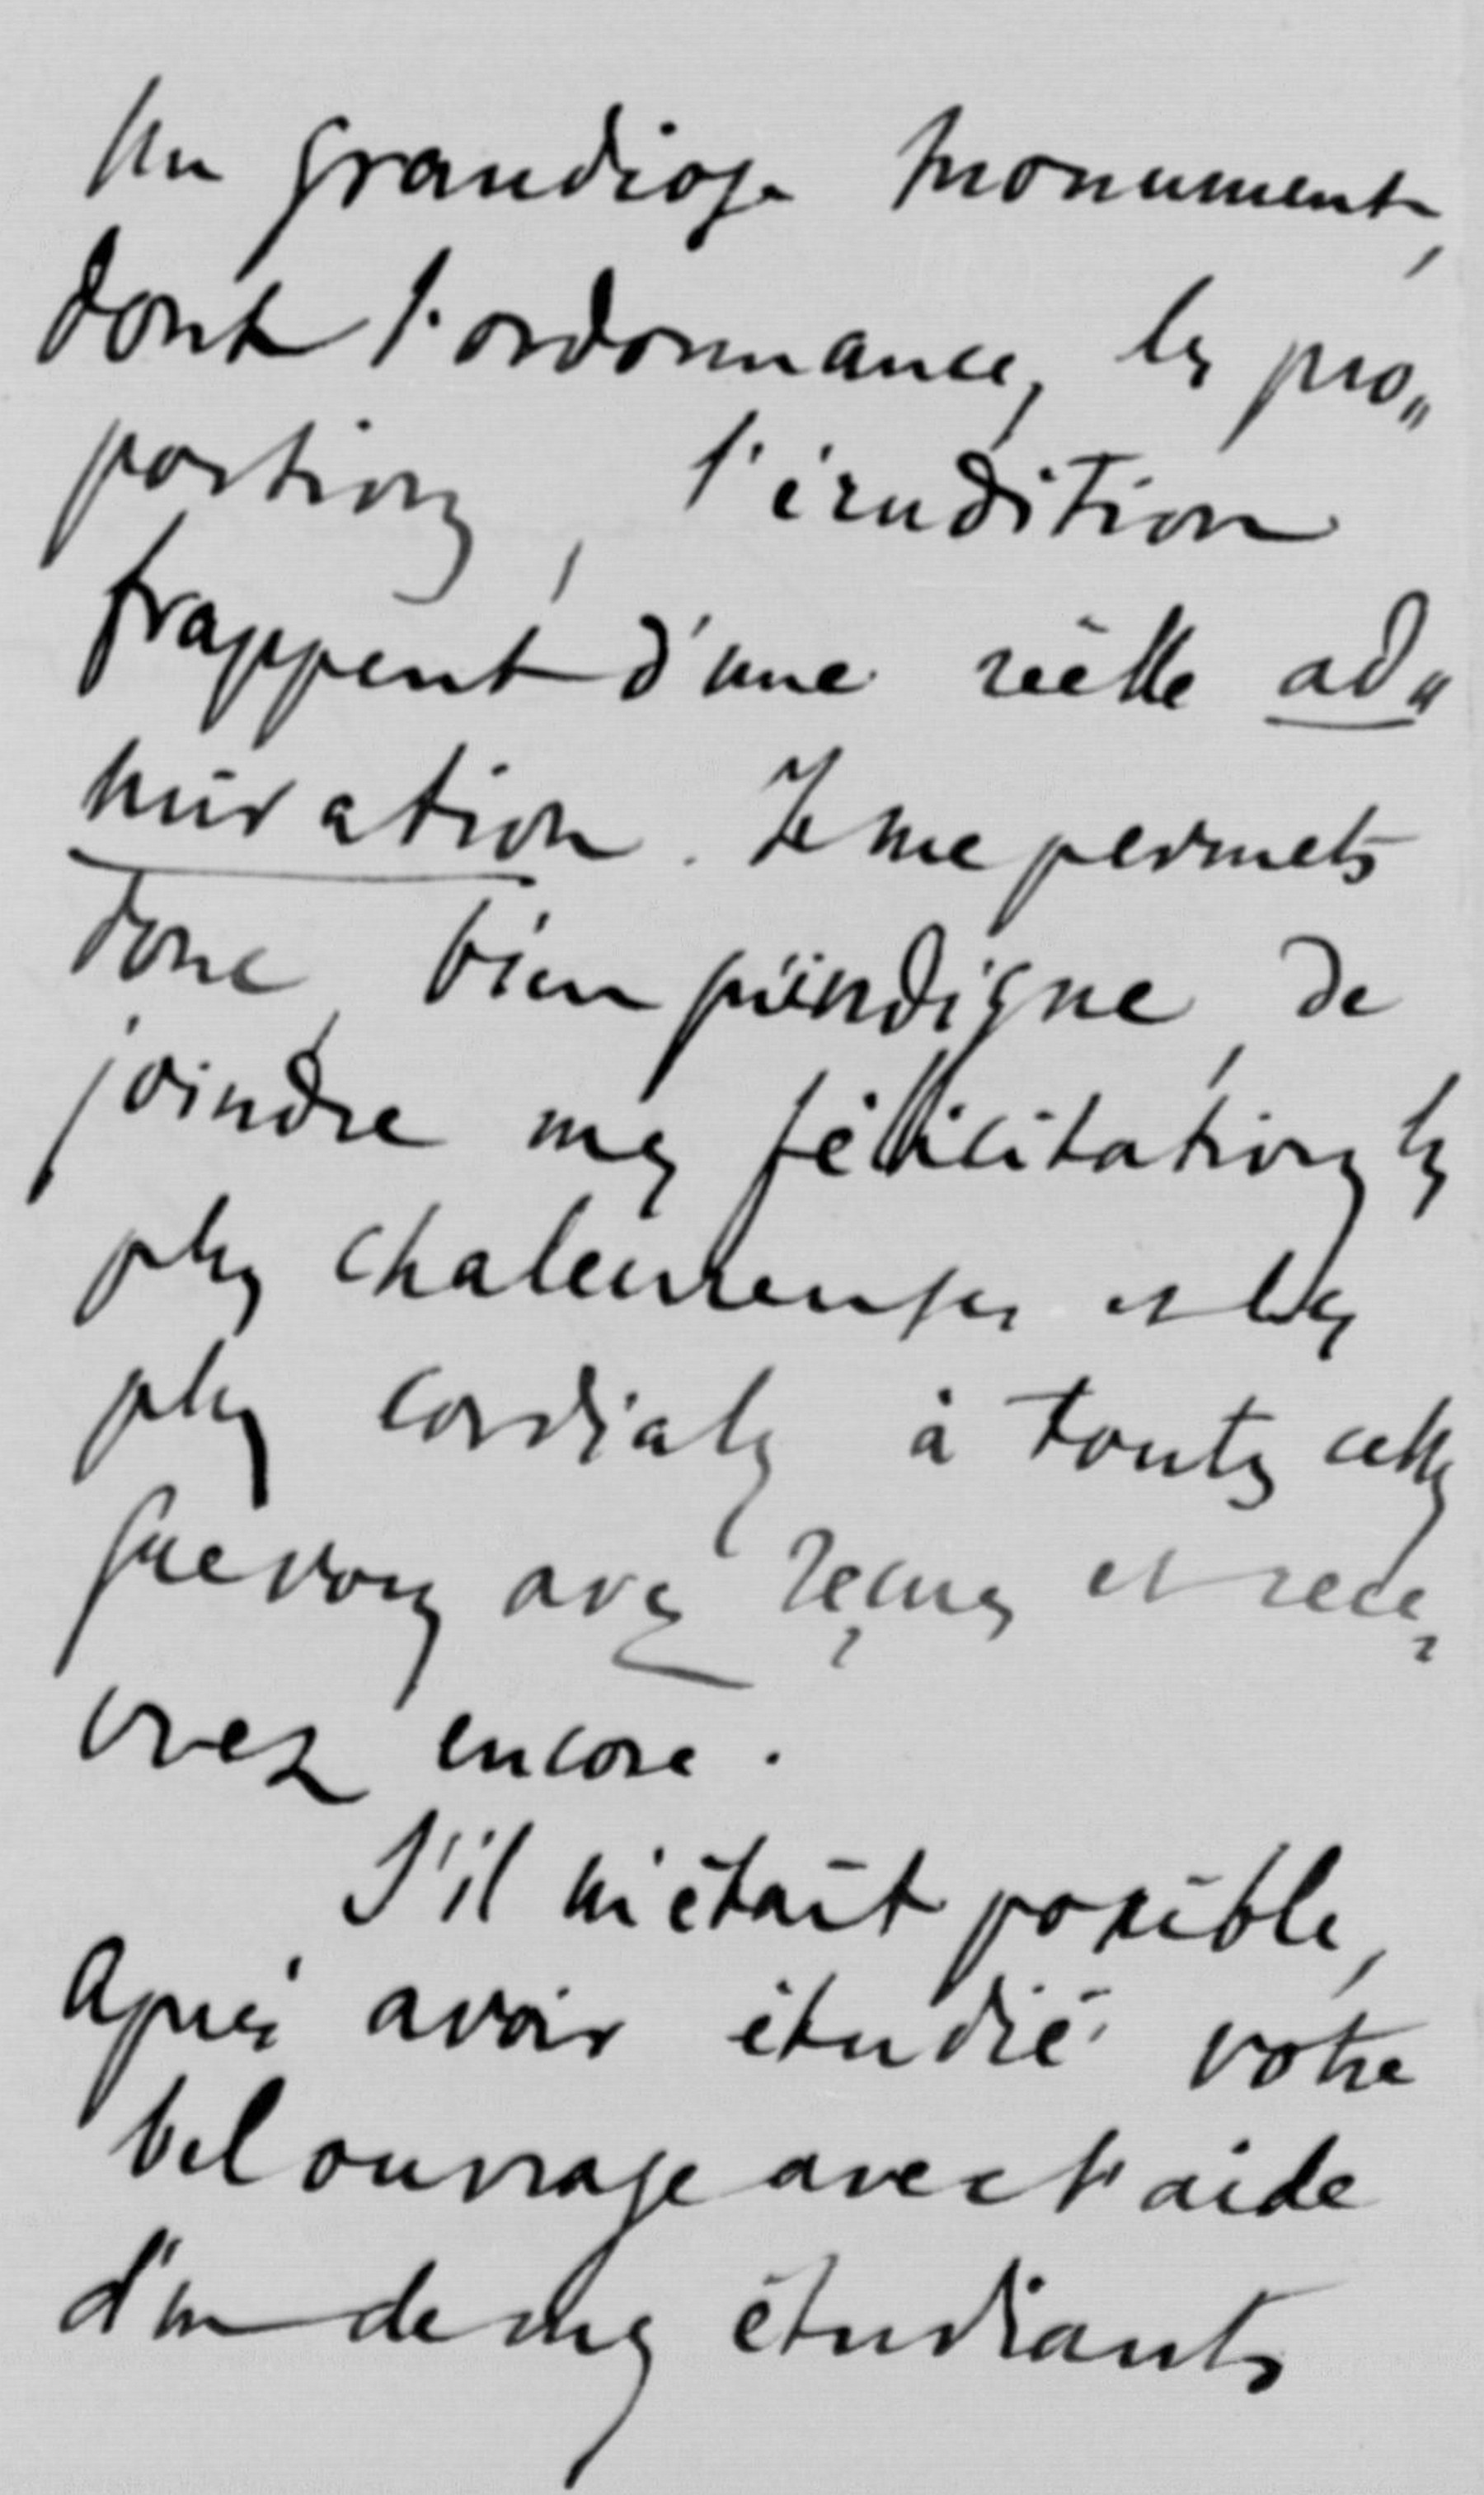 Un grandiose monument,
dont l'ordonnance, les pro„
portions, l'érudition
frappent d'une réelle ad„
miration. Je me permets
donc, bien qu'indigne, de
joindre mes félicitations les
plus chaleureuses et les
plus cordiales à toutes celles
que vous avez reçues et rece„
vrez encore.
S'il m'était possible,
Après avoir étudié votre
bel ouvrage avec l'aide
d'un de mes étudiants